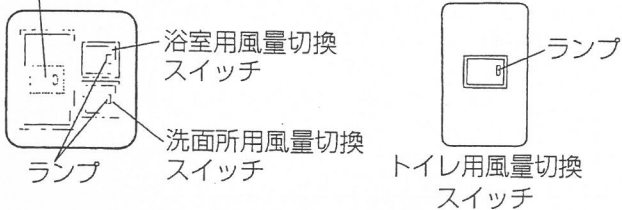 浴室用風量切換
スイッチ
洗面所用風量切換
スイッチ
ランプ
ランプ
トイレ用風量切換
スイッチ